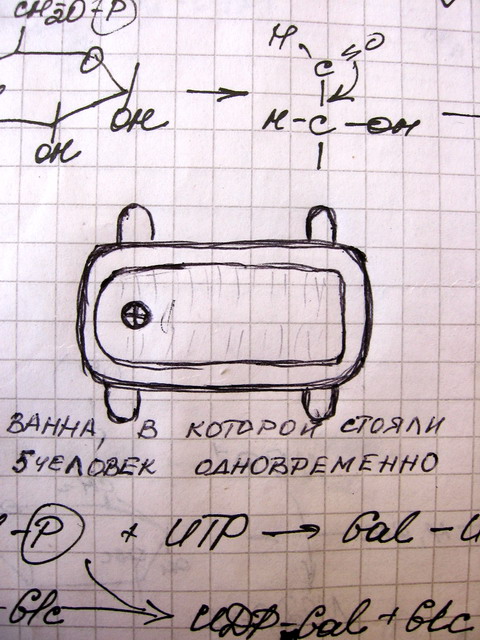 CH2O-P
O
H C O
OH H-C-OH
OH
ВАННА, В КОТОРОЙ СТОЯЛИ
5 ЧЕЛОВЕК ОДНОВРЕМЕННО
-P + UTP → Gal - U
Glc → UDP-Gal + Glc